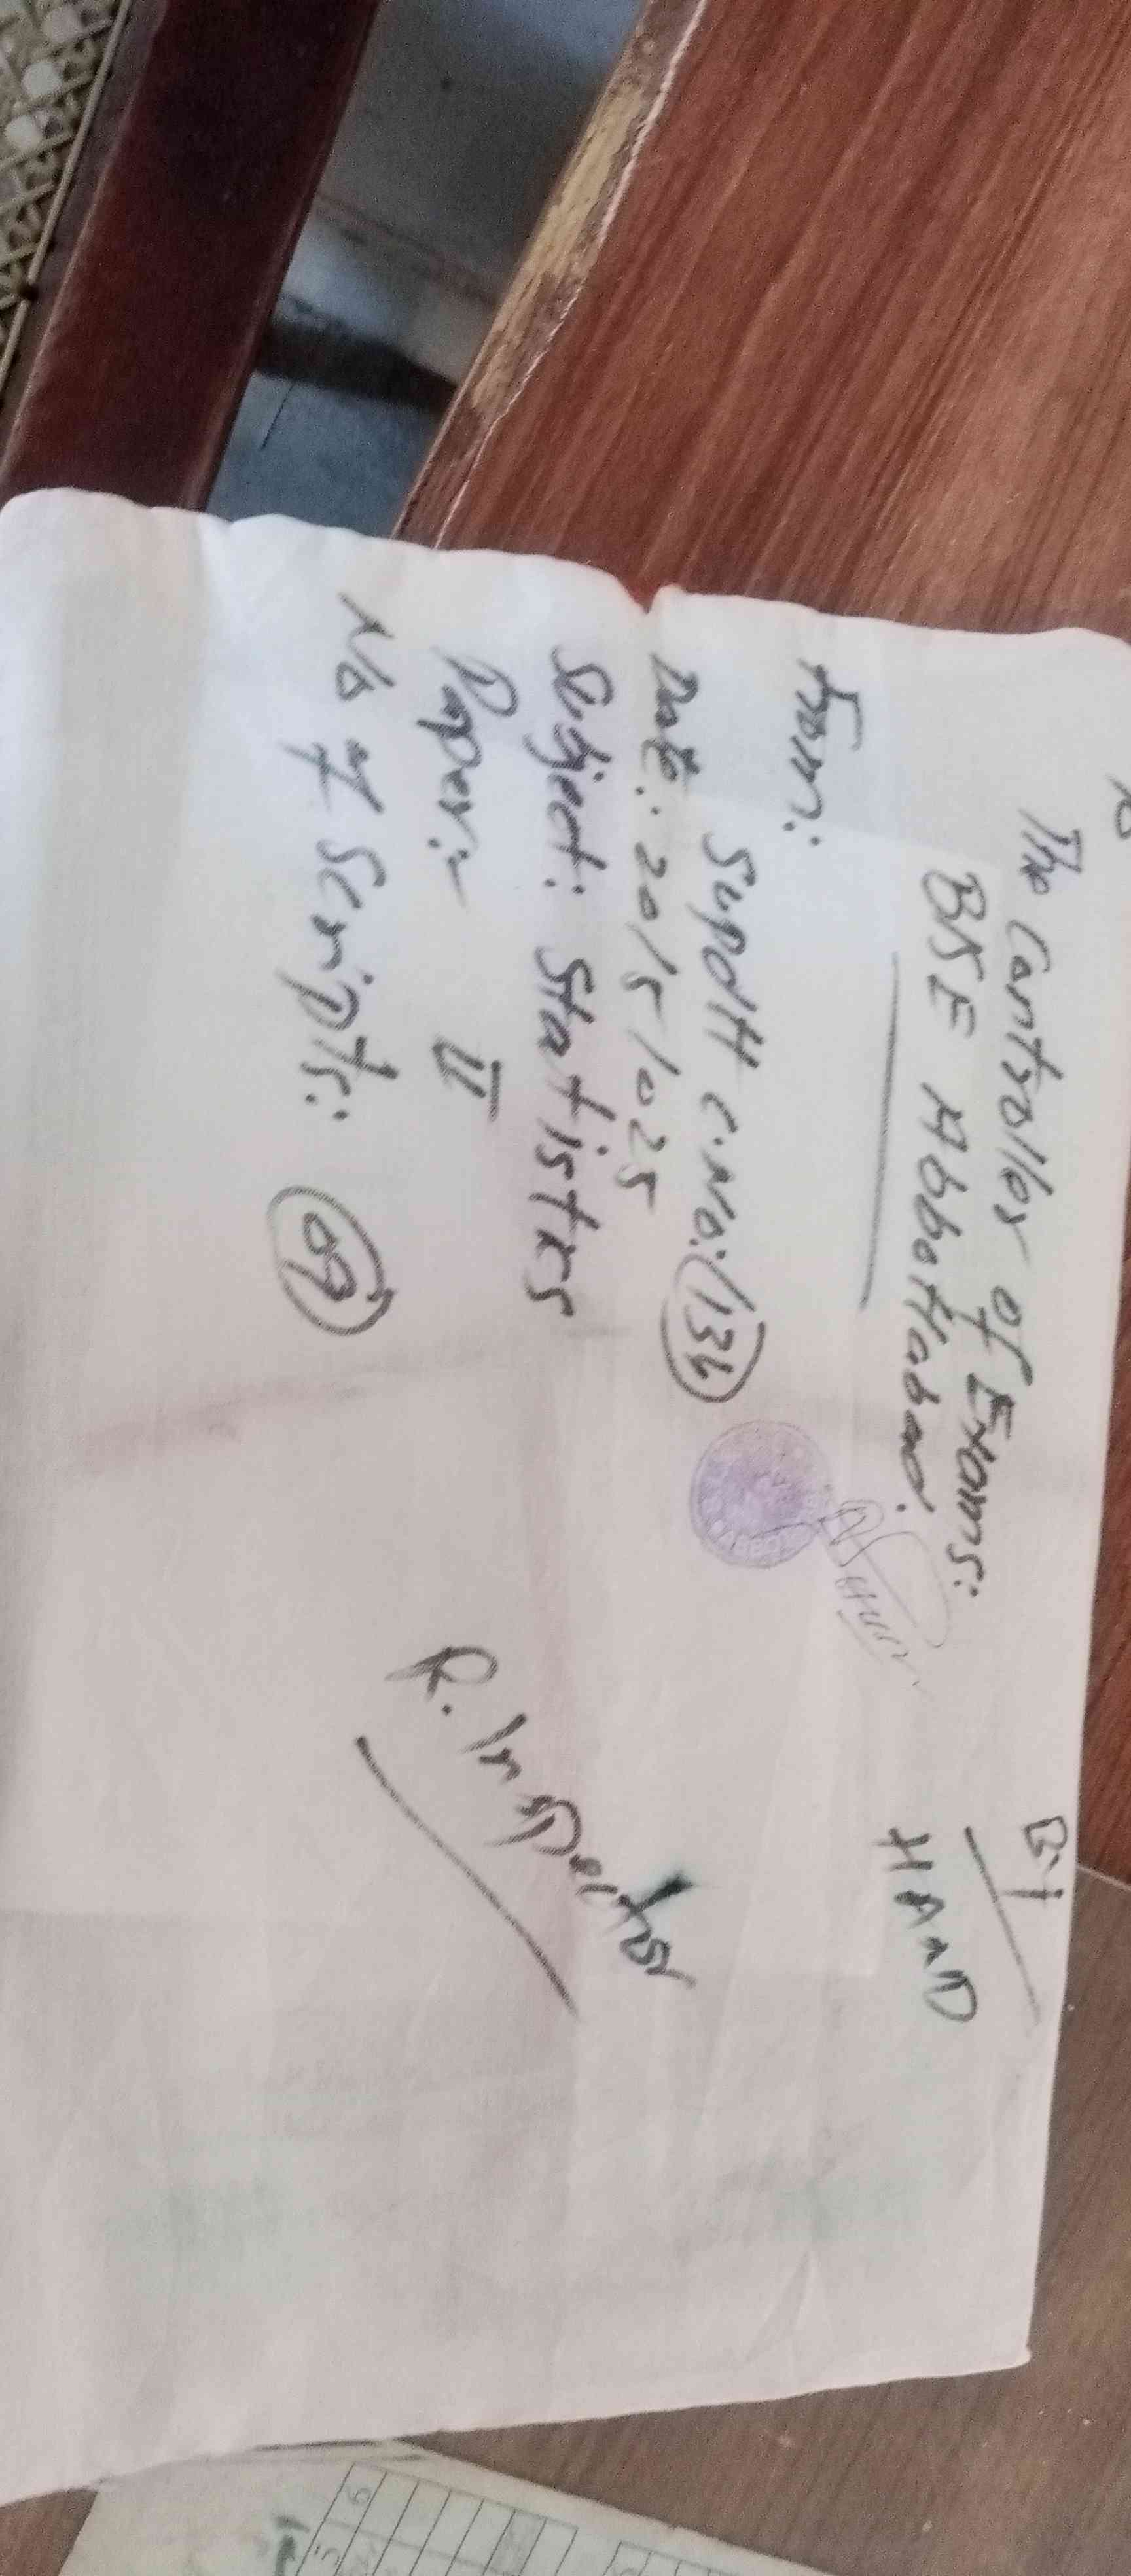 To
The Controller of Exams:
BISE Abbottabad.
By
HAND
From:
Supdtt C.No: 136
Date: 20/5/025
Subject: Statistics
Paper:- II
No of Scripts: 09
R. Inspector